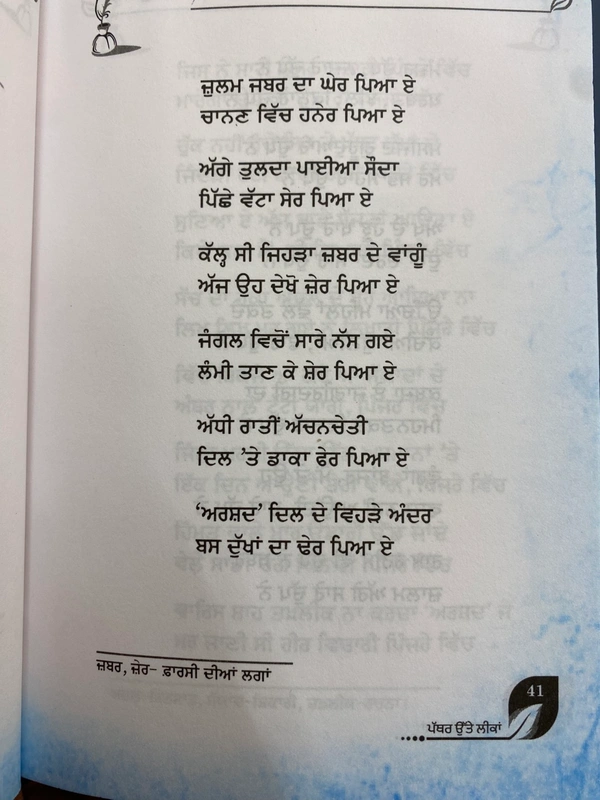 ਜ਼ੁਲਮ ਜਬਰ ਦਾ ਘੇਰ ਪਿਆ ਏ
ਚਾਨਣ ਵਿੱਚ ਹਨੇਰ ਪਿਆ ਏ
ਅੱਗੇ ਤੁਲਦਾ ਪਾਈਆ ਸੌਦਾ
ਪਿੱਛੇ ਵੱਟਾ ਸੇਰ ਪਿਆ ਏ
ਕੱਲ੍ਹ ਸੀ ਜਿਹੜਾ ਜ਼ਬਰ ਦੇ ਵਾਂਗੂੰ
ਅੱਜ ਉਹ ਦੇਖੋ ਜ਼ੇਰ ਪਿਆ ਏ
ਜੰਗਲ ਵਿਚੋਂ ਸਾਰੇ ਨੱਸ ਗਏ
ਲੰਮੀ ਤਾਣ ਕੇ ਸ਼ੇਰ ਪਿਆ ਏ
ਅੱਧੀ ਰਾਤੀਂ ਅੱਚਨਚੇਤੀ
ਦਿਲ ’ਤੇ ਡਾਕਾ ਫੇਰ ਪਿਆ ਏ
‘ਅਰਸ਼ਦ’ ਦਿਲ ਦੇ ਵਿਹੜੇ ਅੰਦਰ
ਬਸ ਦੁੱਖਾਂ ਦਾ ਢੇਰ ਪਿਆ ਏ
ਜ਼ਬਰ, ਜ਼ੇਰ- ਫ਼ਾਰਸੀ ਦੀਆਂ ਲਗਾਂ
41
ਪੱਥਰ ਉੱਤੇ ਲੀਕਾਂ